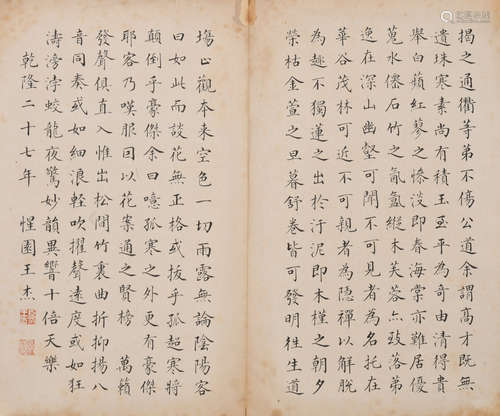 揭之通衢等弟不傷公道余謂高才既無
遺珠寒素尚有積玉並平為奇由清得貴
舉白蘋紅蓼之慘淡即春海棠亦難居優
蒐水僊石竹之氤氳縱木芙蓉亦致落弟
逸在深山幽壑可聞不可見者為名托在
華谷茂林可近不可親者為隱禪以解脫
為趣不獨蓮之出於汙泥即木槿之朝夕
榮枯金萱之旦暮舒卷皆可發明徃生道
場止觀本來空色一切雨露無論陰陽客
曰如此而談花無正格或拔乎孤超寒將
顛倒乎豪傑余曰噫孤寒之外更有豪傑
耶客乃嘆服因以花案通之賢榜 萬籟
發聲俱直入惟出松間竹裏曲折抑揚八
音同奏或如細浪輕吹擢聲遠度或如狂
濤滂浡蛟龍夜驚妙韻異響十倍天樂
乾隆二十七年 惺園王杰